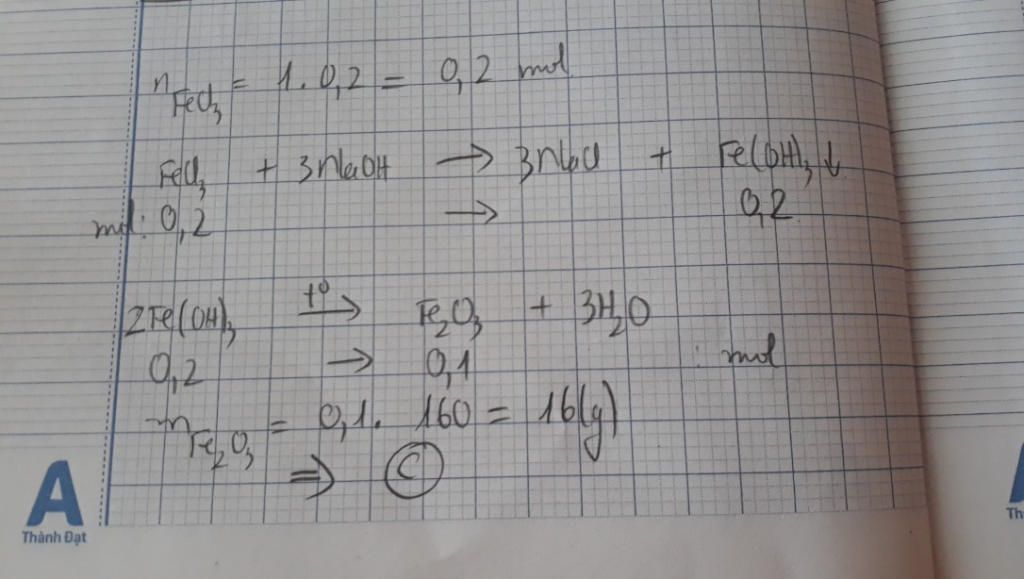 n FeCl3 = 1. 0,2 = 0,2 mol
FeCl3 + 3NaOH → 3NaCl + Fe(OH)3↓
mol: 0,2 → 0,2
2Fe(OH)3 t° → Fe2O3 + 3H2O
0,2 → 0,1 : mol
m Fe2O3 = 0,1. 160 = 16(g)
⇒ C
A
Thành Đạt
Th